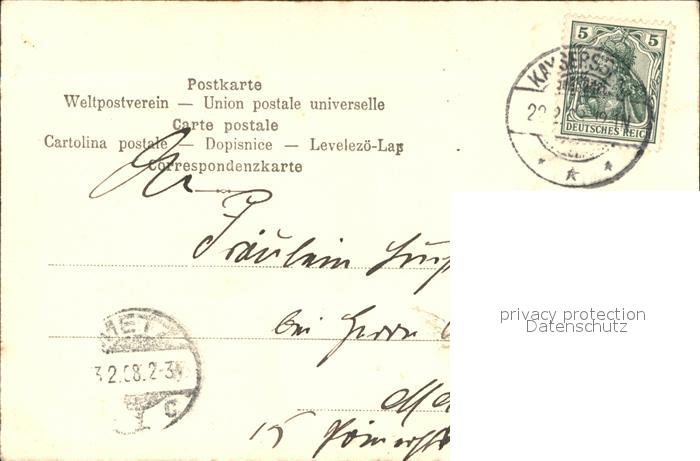 Postkarte
Weltpostverein — Union postale universelle
Carte postale
Cartolina postale — Dopisnice — Levelező-Lap
Correspondenzkarte
5 5
DEUTSCHES REICH
KAYSERS
An
Fräulein
bei Herrn
15
MET
3.2.08.2-3
c
privacy protection
Datenschutz